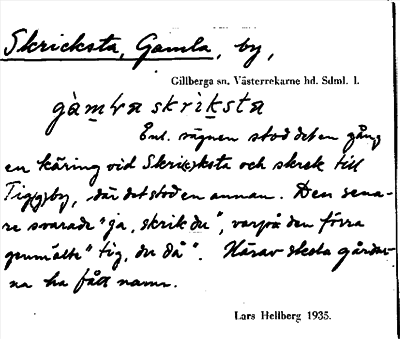 Skricksta, Gamla, by,
Gillberga sn. Västerrekarne hd. Sdml. l.
gàmɫa skrìksta
Enl. sägnen stod det en gång
en käring vid Skri(c)ksta och skrek till
Tig(g)by, där det stod en annan. Den sena-
re svarade "ja, skrik du", varpå den förra
genmälte "tig, du då". Härav skola gårdar-
na ha fått namn.
Lars Hellberg 1935.